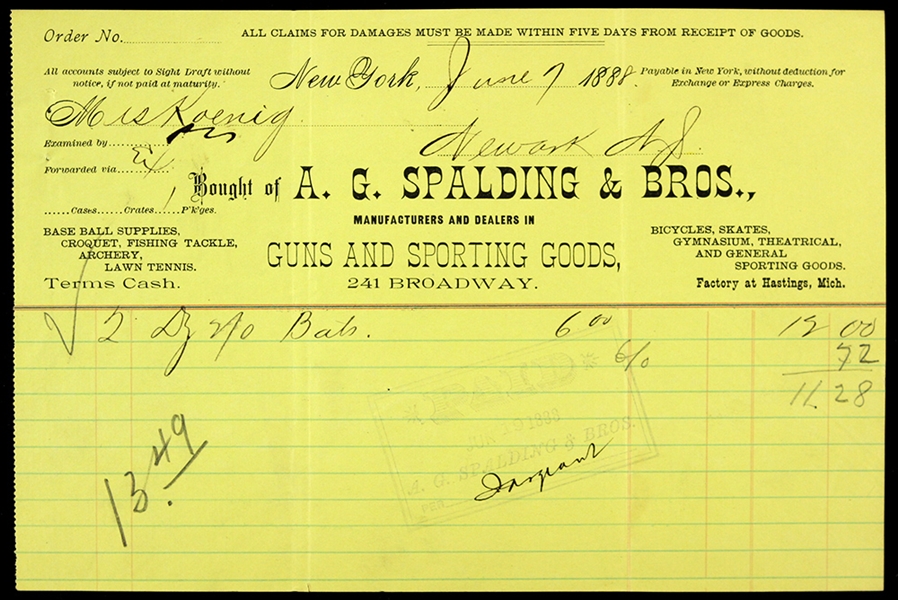 Order No. ALL CLAIMS FOR DAMAGES MUST BE MADE WITHIN FIVE DAYS FROM RECEIPT OF GOODS.
All accounts subject to Sight Draft without
notice, if not paid at maturity.
New York, June 7 1888.
Payable in New York, without deduction for
Exchange or Express Charges.
Mrs Koenig
Newark N.J.
Examined by
Forwarded via Ex
Bought of A. G. SPALDING & BROS.,
Cases Crates 1 P'k'ges.
MANUFACTURERS AND DEALERS IN
GUNS AND SPORTING GOODS,
241 BROADWAY.
BASE BALL SUPPLIES,
CROQUET, FISHING TACKLE,
ARCHERY,
LAWN TENNIS.
Terms Cash.
BICYCLES, SKATES,
GYMNASIUM, THEATRICAL,
AND GENERAL
SPORTING GOODS.
Factory at Hastings, Mich.
2 Dz 2/0 Bats. 6 00 12 00
6/0 72
11.28
13.49
PAID
1888
A. G. SPALDING & BROS.
PER